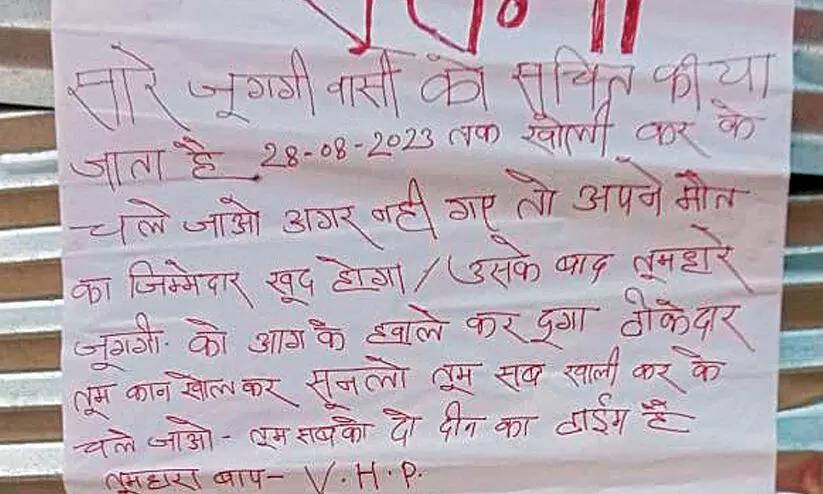 सारे जूगगी वासी को सूचित कीया
जाता है 28-08-2023 तक खोली कर के
चले जाओ अगर नही गए तो अपने मौत
का जिम्मेदार खूद होगा / उसके बाद तूमहारे
जूगगी. को आग के हवाले कर दूगा ठीकेदार
तूम कान खोल कर सूनलो तूम सब खाली कर के
चले जाओ - तूम सबको दो दीन का टाईम है
तूमहारा बाप - V.H.P.